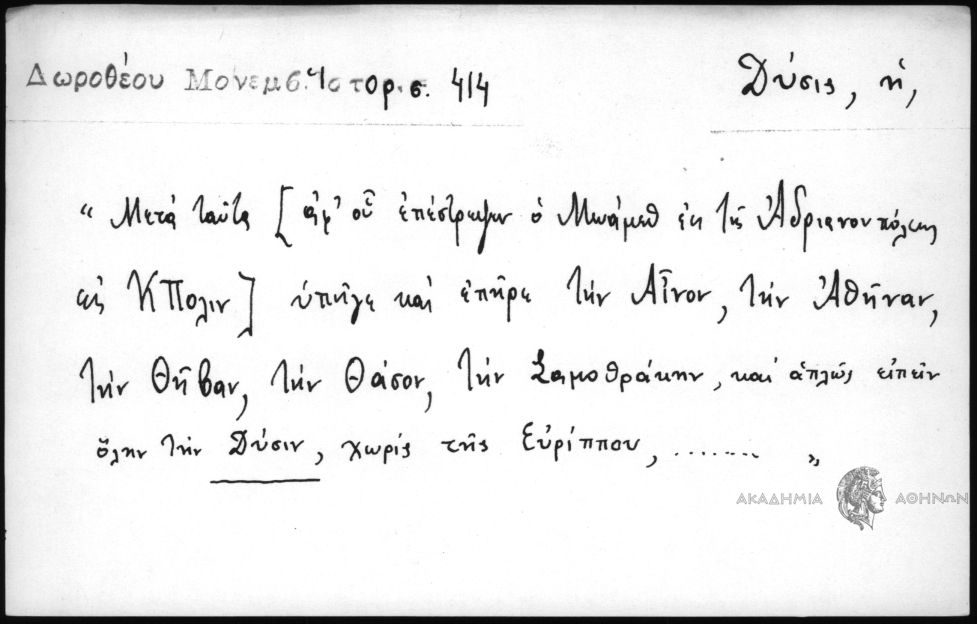 Δωροθέου Μονεμβ. Ἱστορ. σ. 414
Δύσις, ἡ,
“ Μετὰ ταῦτα [ἀφ' οὗ ἐπέστρεψεν ὁ Μωάμεθ ἐκ τῆς Ἀδριανουπόλεως
εἰς ΚΠολιν] ὑπῆγε καὶ ἐπῆρε τὴν Αἶνον, τὴν Ἀθῆναν,
τὴν Θῆβαν, τὴν Θάσον, τὴν Σαμοθράκην, καὶ ἁπλῶς εἰπεῖν
ὅλην τὴν Δύσιν, χωρὶς τῆς Εὐρίππου, ........ „
ΑΚΑΔΗΜΙΑ ΑΘΗΝΩΝ